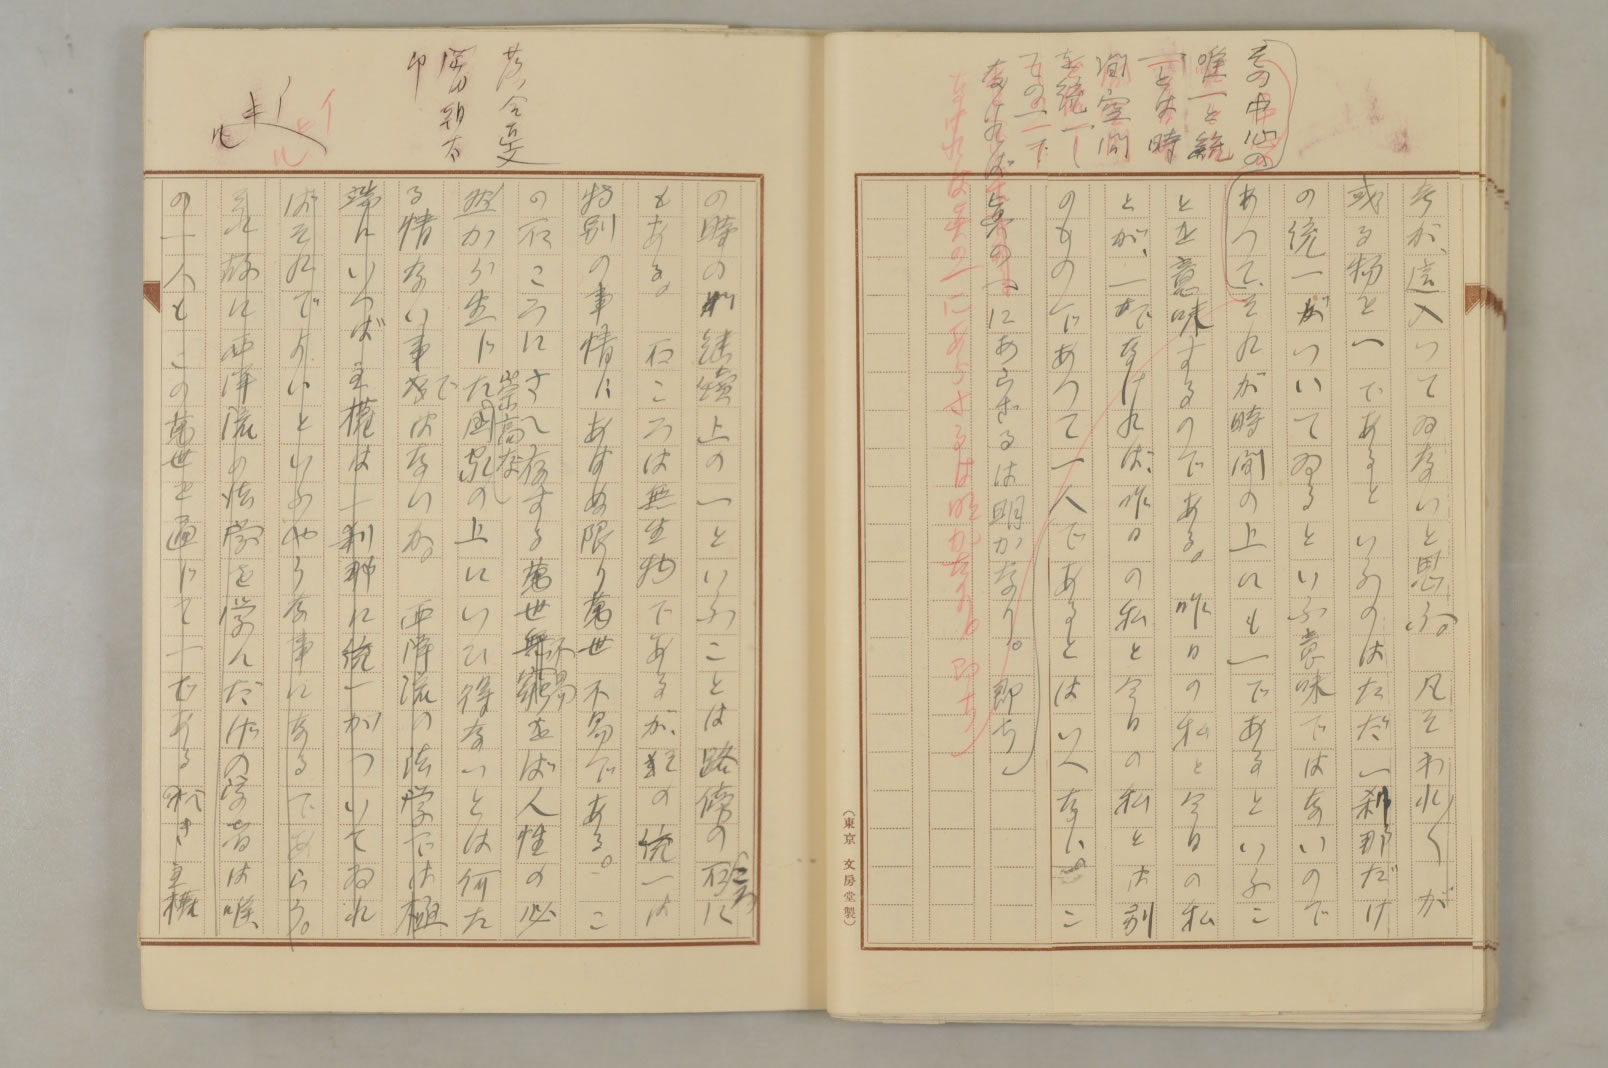 考が、這入つてゐないと思ふ。凡そわれ〱が
或る物を一であるといふのはただ一刹那だけ
の統一がついてゐるといふ意味ではないので
あつて、それが時間の上にも一であるといふこ
とを意味するのである。昨日の私と今日の私
とが、一でなければ、昨日の私と今日の私とは別
のものであつて一人であるとはいへない。こ
その中心の
唯一と統
一とは時
間空間
を統一し
その一下
なければ真の一にあらざるは明かなり。即ち
なければ真の一にあらざるは明かなり。即ち
(東京 文房堂製)
の時の継続上の一といふことは路傍の石ころに
もある。石ころは無生物であるが、の統一は
特別の事情にあはぬ限り萬世不易である。こ
の石ころにさへ存する萬世無窮不易をば人性の必
然から生じた崇高なる国家の上にいひ得ないとは何た
る情ない事ではないか。西洋流の法学では極
端にいつば主権は一刹那に統一がついてゐれ
ばそれでよいといふやうな事になるであらう。
それ故に西洋流の法学を学んだ次の学者は唯
の一人もこの萬世を通じて一である如き主権
岡田朝太
印
イ
キ
ル
イ
ヒ
ル